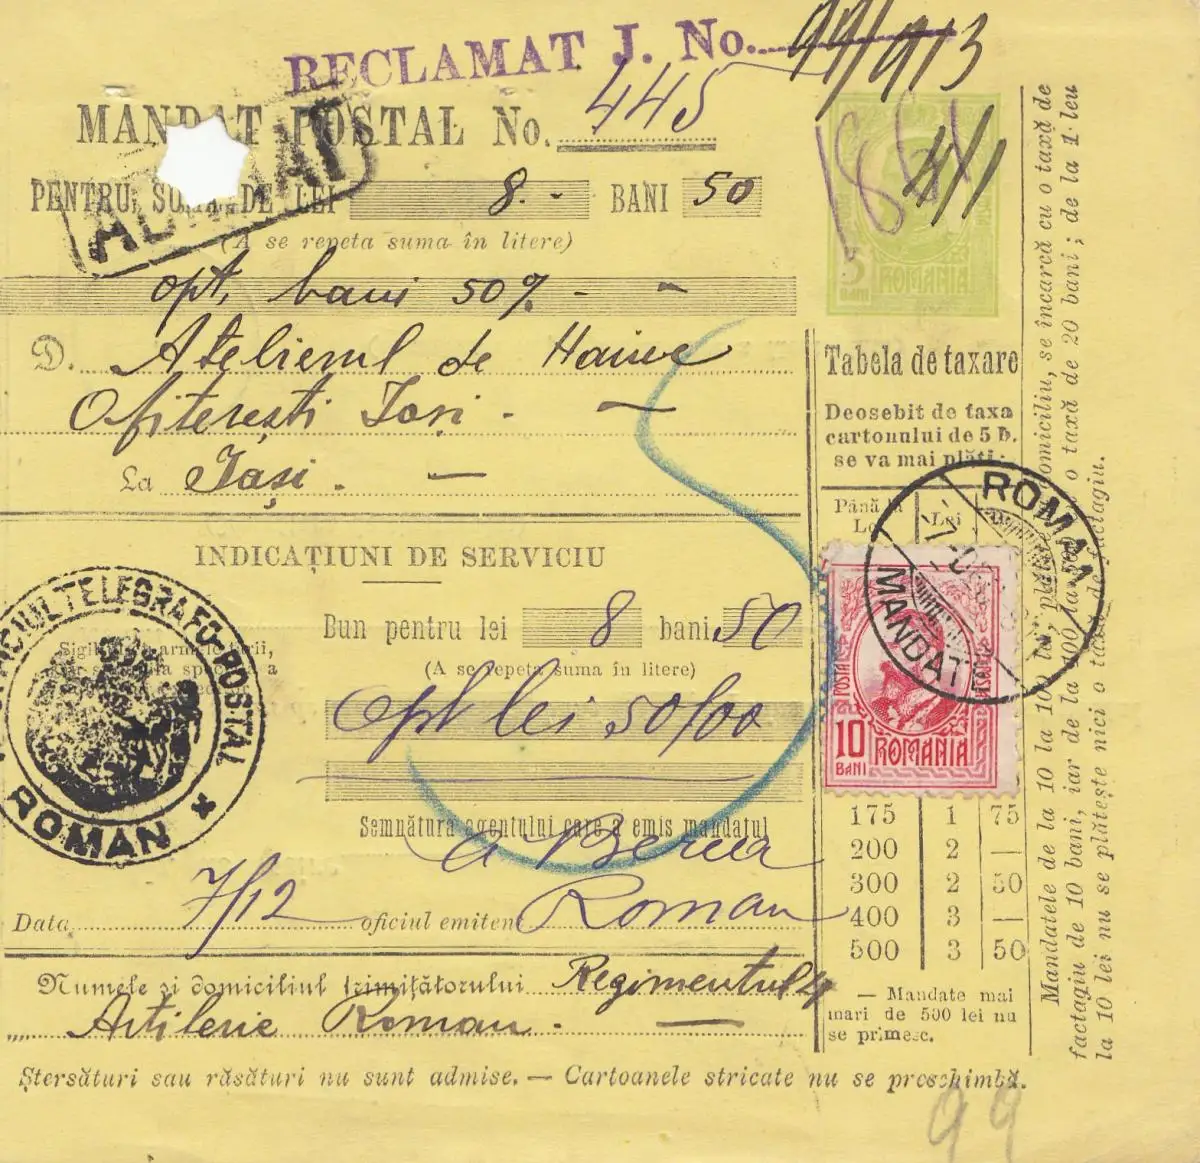 RECLAMAT J. No. 99/913
MANDAT POSTAL No. 445
ACHITAT
PENTRU SUMA DE LEI 8.- BANI 50
(A se repeta suma în litere)
opt, bani 50%
D. Atelierul de Haine
Ofiterești Iași.
La Iași.
5 BANI ROMANIA
Tabela de taxare
Deosebit de taxa
cartonului de 5 b.
se va mai plăti:
Până la
Lei
INDICAȚIUNI DE SERVICIU
Bun pentru lei 8 bani 50
(A se repeta suma în litere)
Opt lei 50/00
Semnătura agentului care a emis mandatul
Roman
Data 7/12 oficiul emitent
OFICIUL TELEGRAFO-POSTAL
ROMAN
ROMAN
MANDATE
POSTA
10 BANI ROMANIA
175 1 75
200 2 —
300 2 50
400 3 —
500 3 50
— Mandate mai
mari de 500 lei nu
se primesc.
Numele și domiciliul trimițătorului Regimentul 4
Artilerie Roman.
Ștersături sau răsături nu sunt admise. — Cartoanele stricate nu se preschimbă.
Mandatele de la 10 la 100 lei, plătite domiciliu, se încarcă cu o taxă de
factagiu de 10 bani, iar de la 100 la 500 o taxă de 20 bani; de la 1 leu
la 10 lei nu se plătește nici o taxă de factagiu.
99